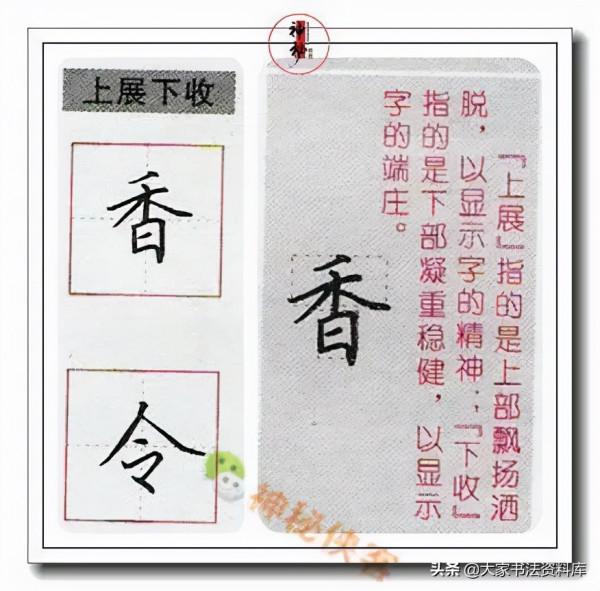 神秘
上展下收
香
令
『上展』指的是上部飘扬洒
脱，以显示字的精神；『下收』
指的是下部凝重稳健，以显示
字的端庄。
香
神秘侠客
头条 @大家书法资料库